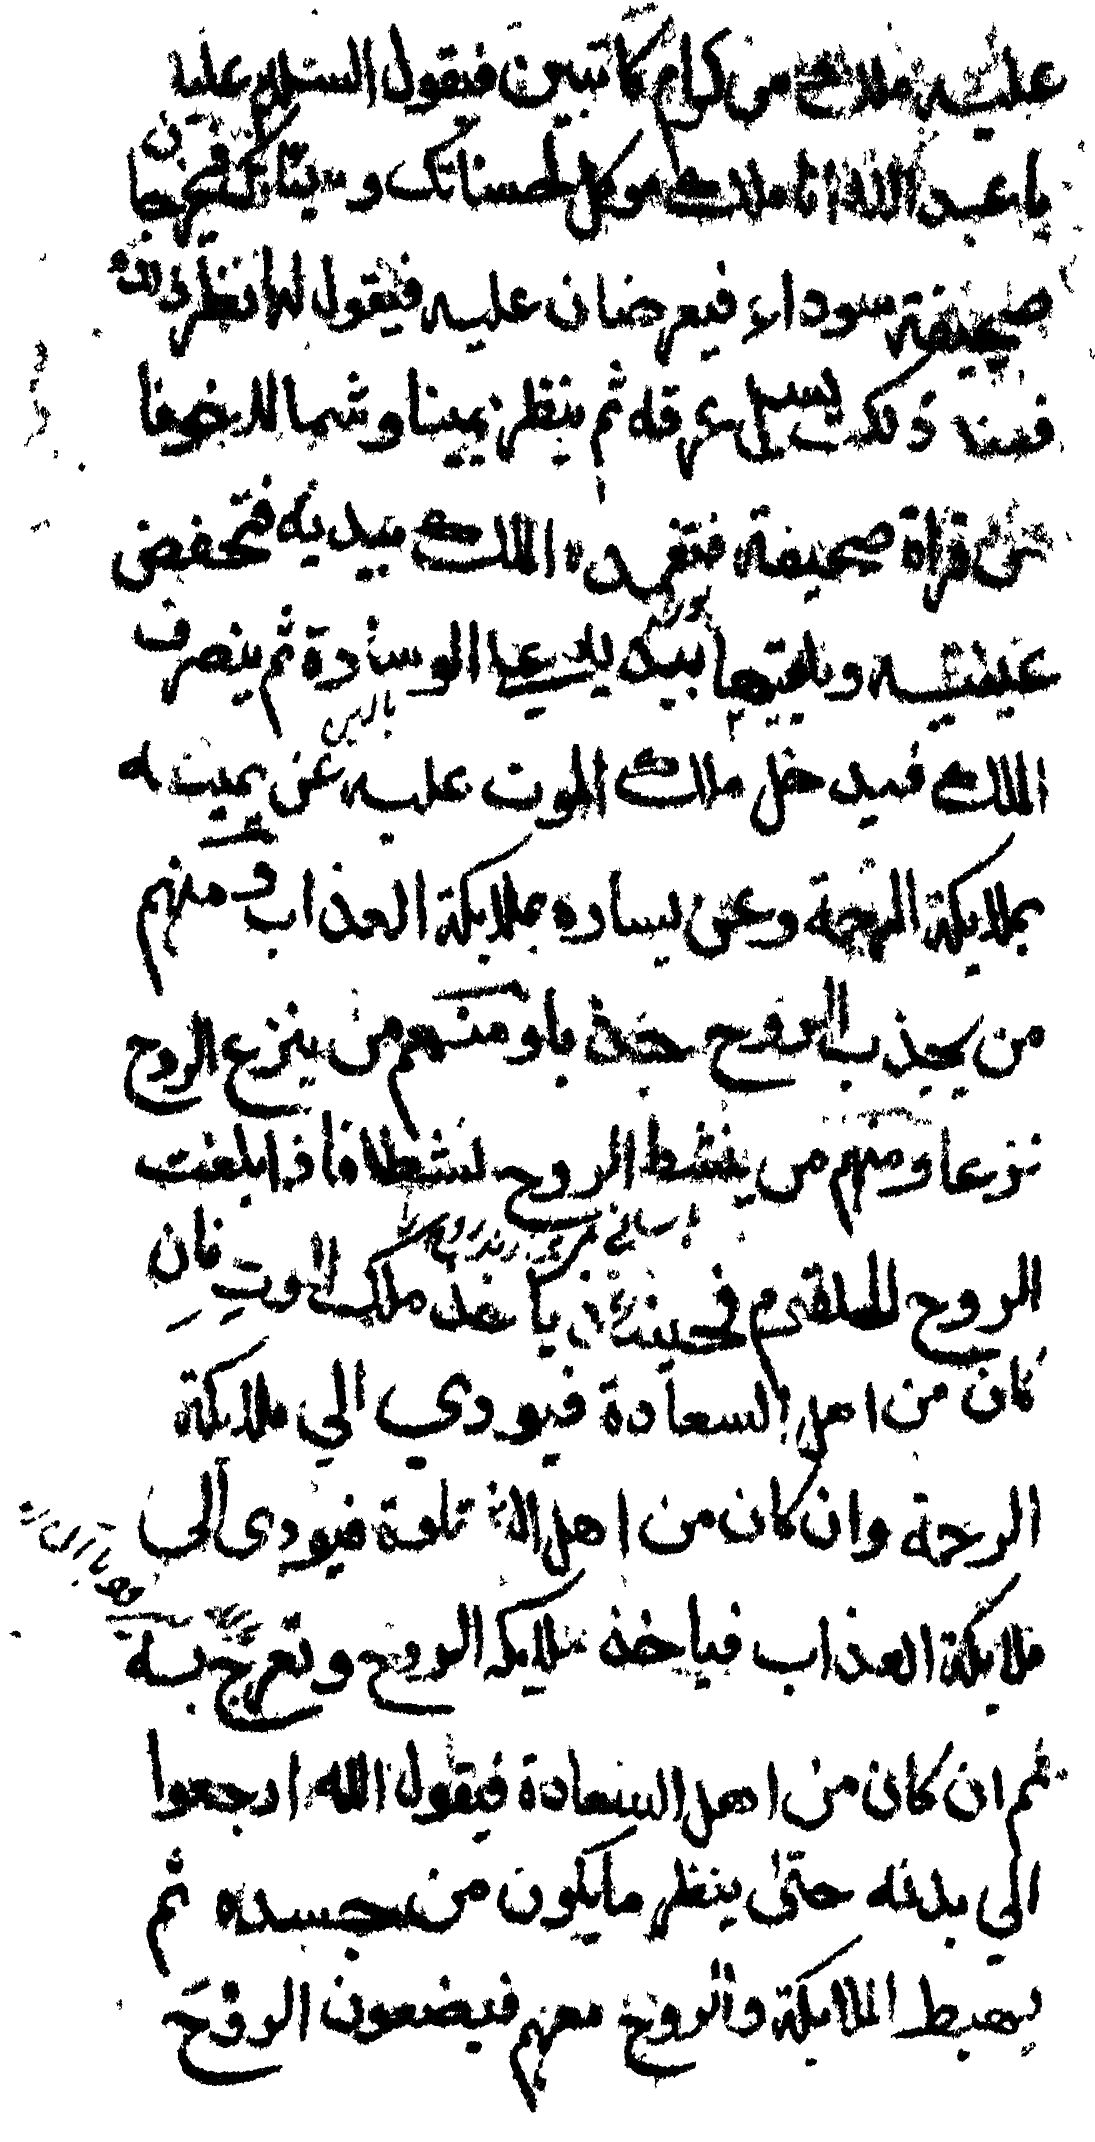 عليه ملك من كرام كاتبين فيقول السلم عليك
يا عبد الله انا ملك موكل لحسناتك وسيئاتك فيخرجان
صحيفة سوداء فيعرضان عليه فيقول لها انظر
فعند ذلك يسيل عرقه ثم ينظر يمينا وشمالا خوفا
من قراة صحيفة الملك بيديه فتخفض
ويلقيها بيد يديه على الوسادة ثم ينصرف
الملك فيدخل ملك الموت عليه عن يمينه
بملايكة الرحمة وعن يساره بملايكة العذاب ومنهم
من يجذب الروح جذبا ومنهم من ينزع الروح
نزعا ومنهم من ينشط الروح نشطا فاذا بلغت
الروح للحلقوم فحينئذ ياخذ ملك الموت فان
كان من اهل السعادة فيودي الي ملايكة
الرحمة وان كان من اهل فيودى الى
ملايكة العذاب فياخذ ملايكة الروح وتعرج به
ثم ان كان من اهل السعادة فيقول الله ارجعوا
الي بدنه حتى ينظر ما يكون من جسده ثم
يهبط الملايكة والروح معهم فيضعون الروح